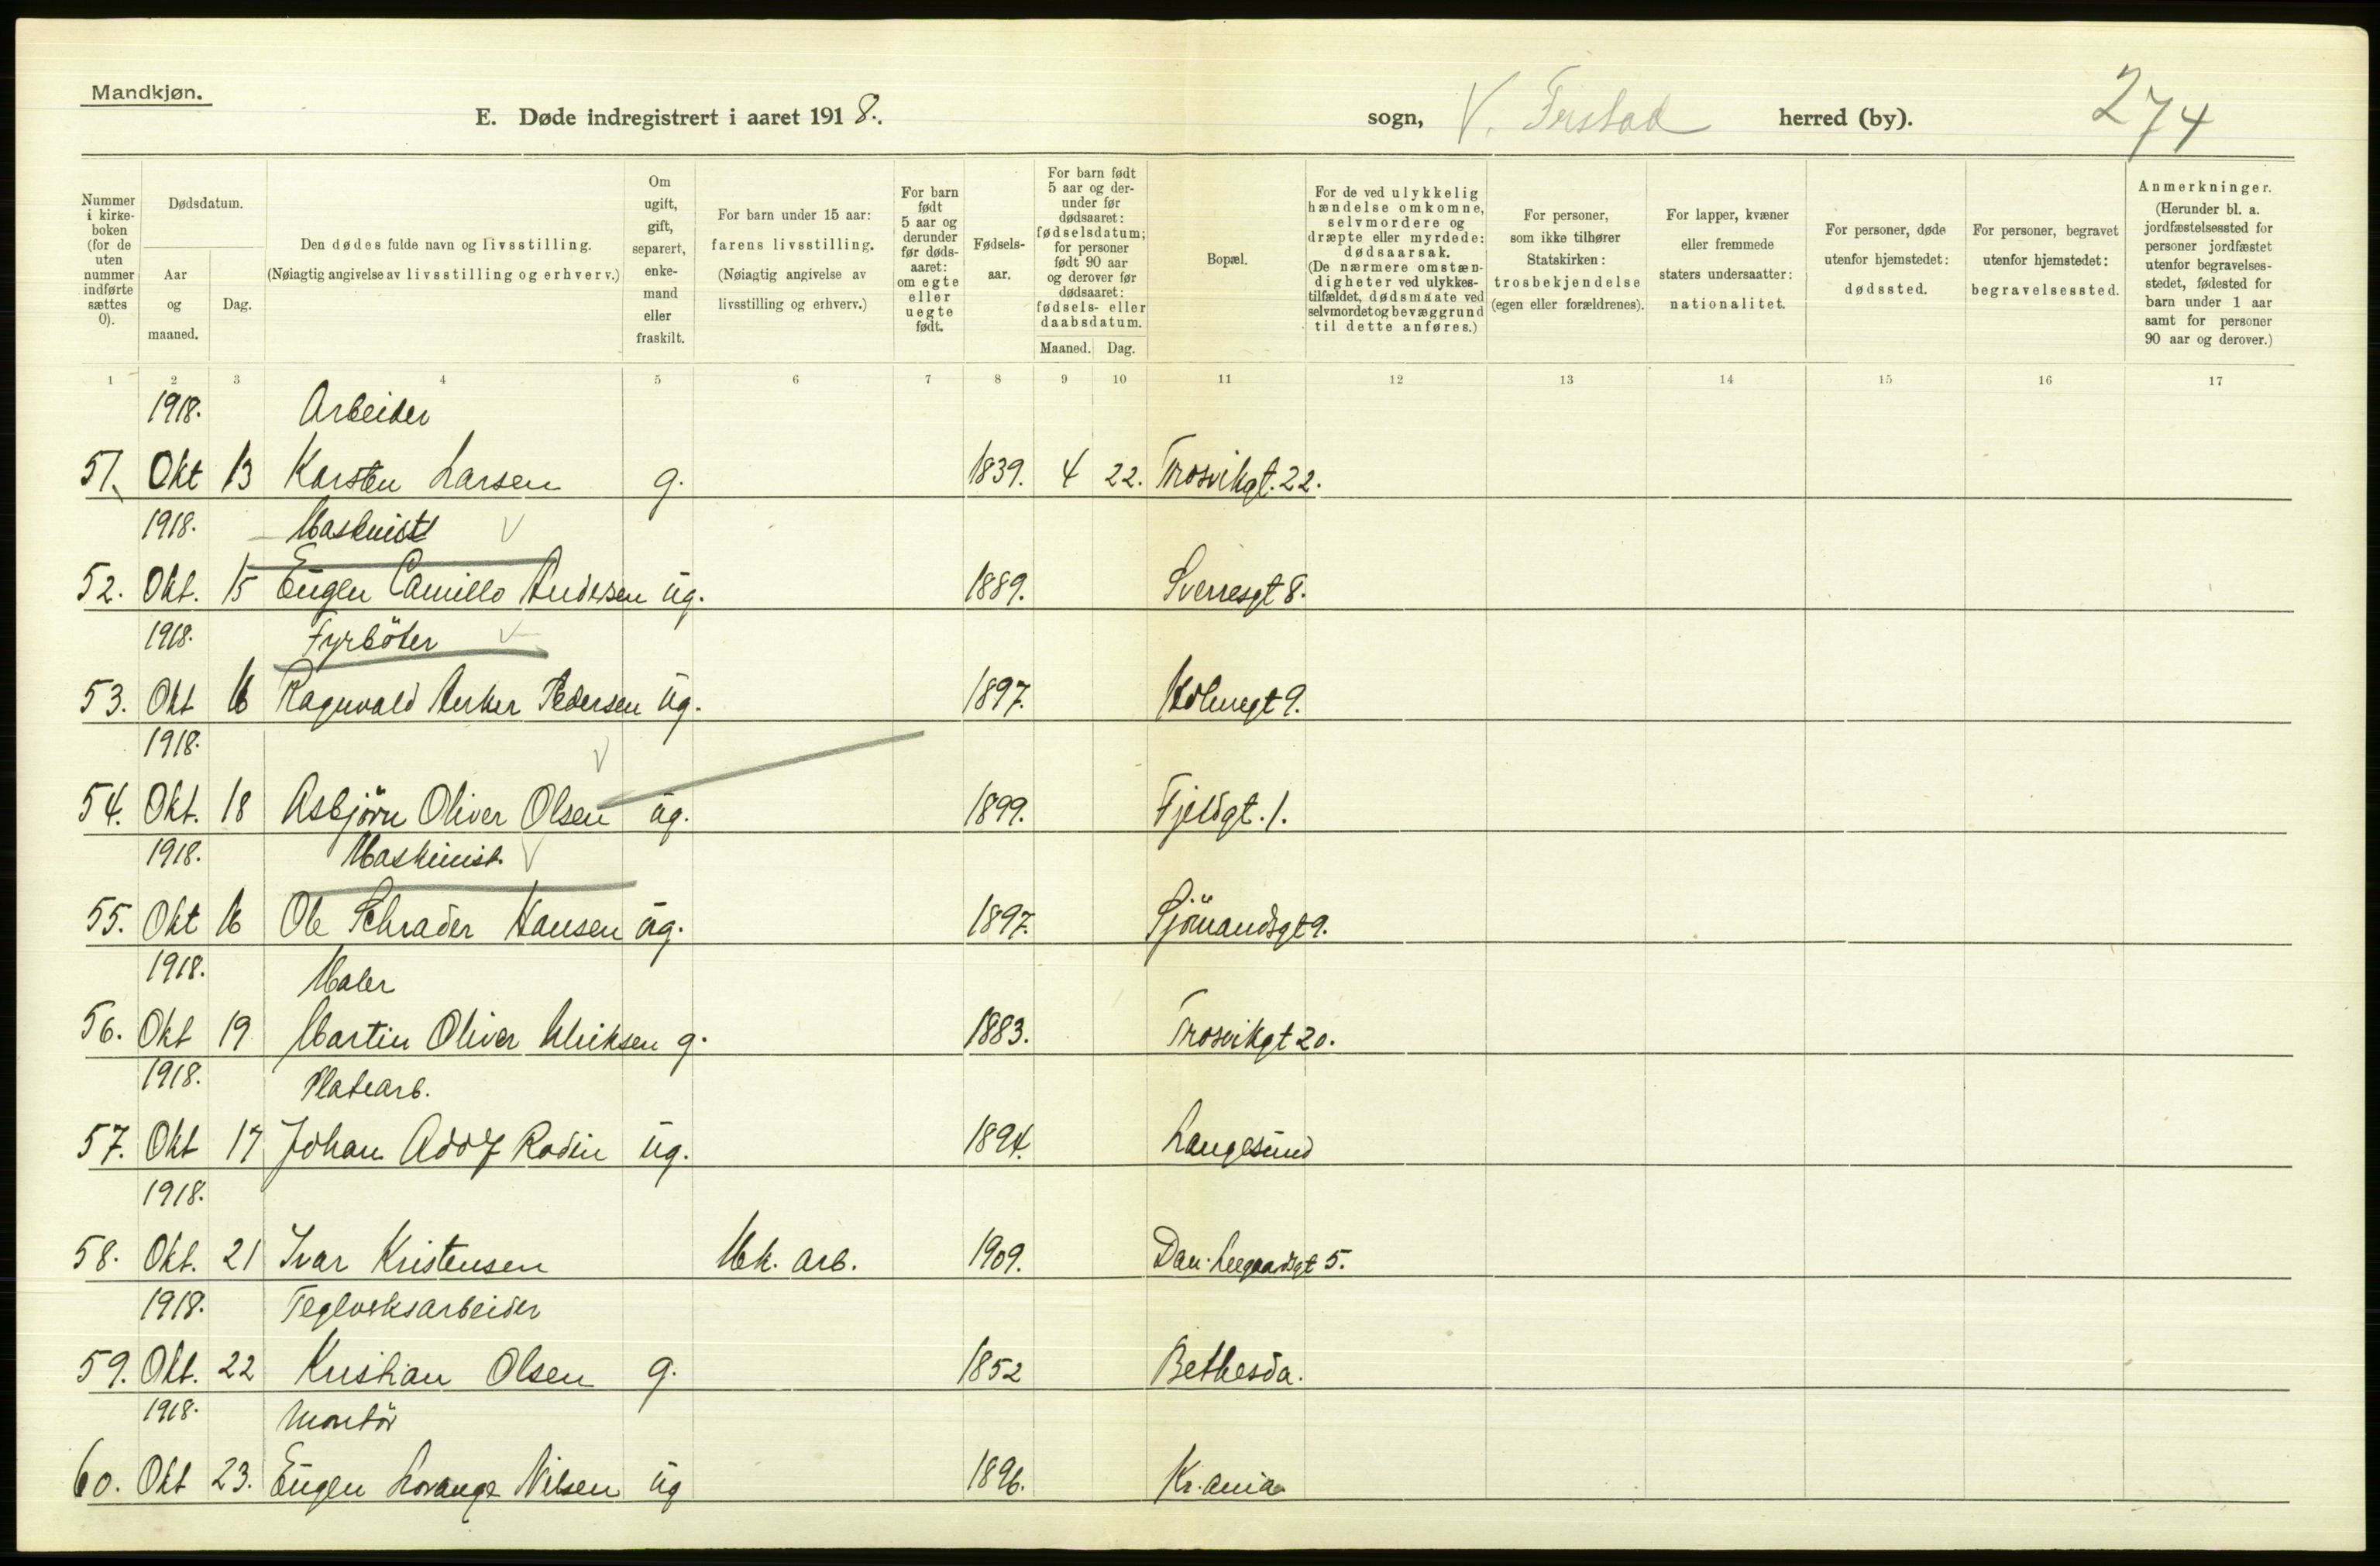 Mandkjøn.
E. Døde indregistrert i aaret 1918.
sogn, V. Frstad herred (by).
274
Nummer i kirkeboken (for de uten nummer indførte sættes 0).
Dødsdatum.
Aar og maaned.
Dag.
Den dødes fulde navn og livsstilling.
(Nøiagtig angivelse av livsstilling og erhverv.)
Om ugift, gift, separert, enkemand eller fraskilt.
For barn under 15 aar: farens livsstilling.
(Nøiagtig angivelse av livsstilling og erhverv.)
For barn født 5 aar og derunder før dødsaaret: om egte eller uegte født.
Fødselsaar.
For barn født 5 aar og derunder før dødsaaret: fødselsdatum; for personer født 90 aar og derover før dødsaaret: fødsels- eller daabsdatum.
Maaned. Dag.
Bopæl.
For de ved ulykkelig hændelse omkomne, selvmordere og dræpte eller myrdede: dødsaarsak.
(De nærmere omstændigheter ved ulykkestilfældet, dødsmaate ved selvmordet og bevæggrund til dette anføres.)
For personer, som ikke tilhører Statskirken: trosbekjendelse (egen eller forældrenes).
For lapper, kvæner eller fremmede staters undersaatter: nationalitet.
For personer, døde utenfor hjemstedet: dødssted.
For personer, begravet utenfor hjemstedet: begravelsessted.
Anmerkninger.
(Herunder bl. a. jordfæstelsessted for personer jordfæstet utenfor begravelsesstedet, fødested for barn under 1 aar samt for personer 90 aar og derover.)
1 2 3 4 5 6 7 8 9 10 11 12 13 14 15 16 17
1918. Arbeider
51. Okt 13 Karsten Larsen g. 1839. 4 22. Trosvikgt. 22.
1918. Maskinist
52. Okt. 15 Eugen Camillo Andersen ug. 1889. Sverresgt 8.
1918. Fyrböter
53. Okt 16 Ragnvald Anker Pedersen ug. 1897. Holmegt 9.
1918.
54. Okt. 18 Asbjörn Oliver Olsen ug. 1899. Fjeldgt. 1.
1918. Maskinist.
55. Okt 16 Ole Schrader Hansen ug. 1897. Sjömandsgt 9.
1918. Maler
56. Okt 19 Martin Oliver Ulriksen g. 1883. Trosvikgt 20.
1918. Platearb.
57. Okt 17 Johan Adolf Rodin ug. 1894. Langesund
1918.
58. Okt. 21 Ivar Kristensen Mek. arb. 1909. Dan. Leegaardsgt 5.
1918. Teglverksarbeider
59. Okt. 22 Kristian Olsen g. 1852 Bethesda.
1918. Montör
60. Okt 23. Eugen Lorange Nilsen ug 1896. Kr.ania